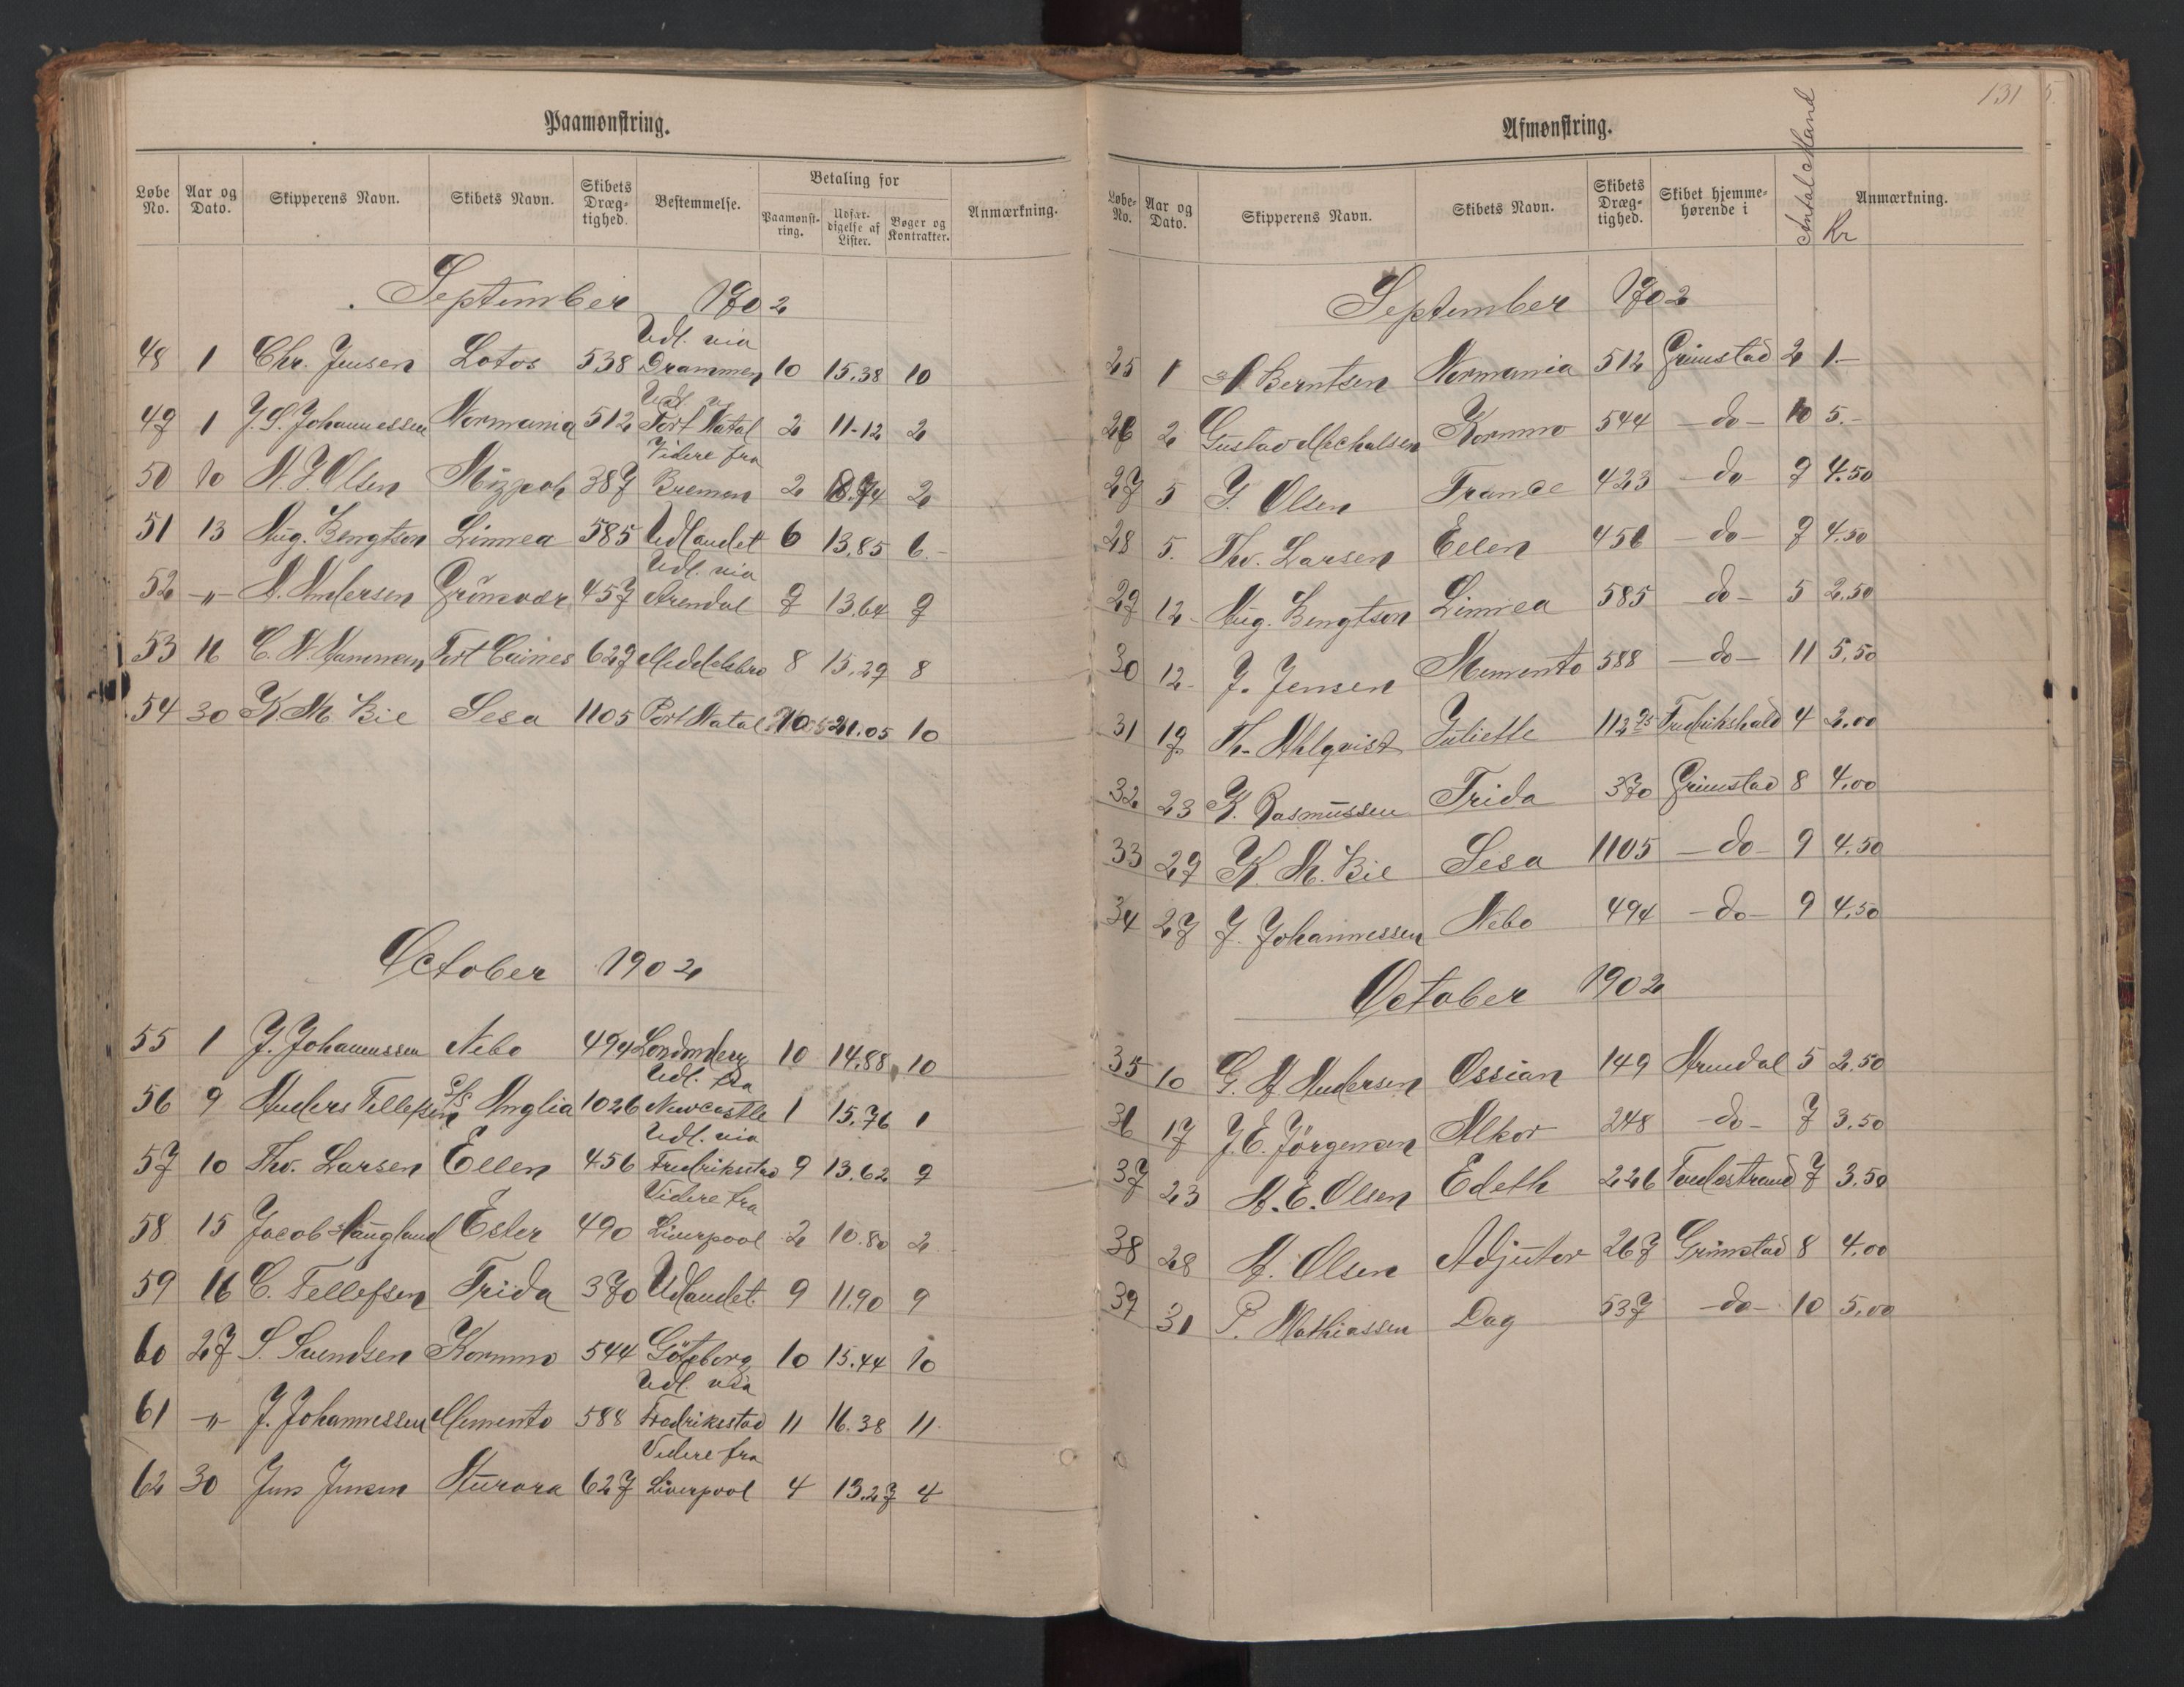 Paamønstring.
Løbe No. Aar og Dato. Skipperens Navn. Skibets Navn. Skibets Dræg-tighed. Bestemmelse. Betaling for Paamønst-ring. Udfær-digelse af Lister. Bøger og Kontrakter. Anmærkning.
September 1902
Udl. via
48 1 Chr. Jensen Lotos 538 Drammen 10 15.38 10
49 1 J. S. Johannessen Normania 512 Port Natal 2 11-12 2
Videre fra
50 10 N. J. Olsen Mizpah 387 Bremen 2 2
51 13 Aug. Bengtson Linnea 585 Udlandet 6 13.85 6.-
Udl. via
52 -"- A. Andersen Grönsvær 457 Arendal 9 13.64 9
53 16 C. N. Mammen Fort Caines 629 Middelsbro 8 15.29 8
54 30 K. M. Bie Sesa 1105 Port Natal 10 21.05 10
October 1902
55 1 J. Johannessen Nebo 494 Londonderry 10 14.88 10
Udl. fra
56 9 Anders Tellefsen S/s Anglia 1026 Newcastle 1 15.76 1
Udl. via
57 10 Thv. Larsen Ellen 456 Fredriksstad 9 13.62 9
Videre fra
58 15 Jacob Haugland Ester 490 Liverpool 2 10.80 2
59 16 C. Tellefsen Frida 370 Udlandet. 9 11.90 9
60 27 S. Svendsen Kornmo 544 Göteborg 10 15.44 10
Udl. via
61 -"- J. Johannessen Memento 588 Fredriksstad 11 16.38 11
Videre fra
62 30 Jens Jensen Aurora 627 Liverpool 4 13.27 4
131
Afmønstring.
Løbe-No. Aar og Dato. Skipperens Navn. Skibets Navn. Skibets Dræg-tighed. Skibet hjemme-hørende i Antal Mand Kr Anmærkning.
September 1902
25 1 A Berntsen Normania 512 Grimstad 2 1.-
26 2 Gustav Michalsen Kornmo 544 -do- 10 5.-
27 5 G. Olsen France 423 -do- 9 4.50
28 5. Thv. Larsen Ellen 456 -do- 9 4.50
29 12- Aug. Bengtson Linnea 585 -do- 5 2.50
30 12- J. Jensen Memento 588 -do- 11 5.50
31 19 Th. Ahlqvist Juliette 112 95 Fredrikshald 4 2.00
32 23 K. Rasmussen Frida 370 Grimstad 8 4.00
33 29 K. M. Bie Sesa 1105 -do- 9 4.50
34 27 J. Johannessen Nebo 494 -do- 9 4.50
October 1902
35 10 G. A. Andersen Ossian 149 Arendal 5 2.50
36 17 J. E. Jörgensen Alkor 248 -do- 7 3.50
37 23 A. E. Olsen Edeth 226 Tvedestrand 7 3.50
38 28 A. Olsen Adjutor 267 Grimstad 8 4.00
39 31 P. Mathiassen Dag 537 -do- 10 5.00